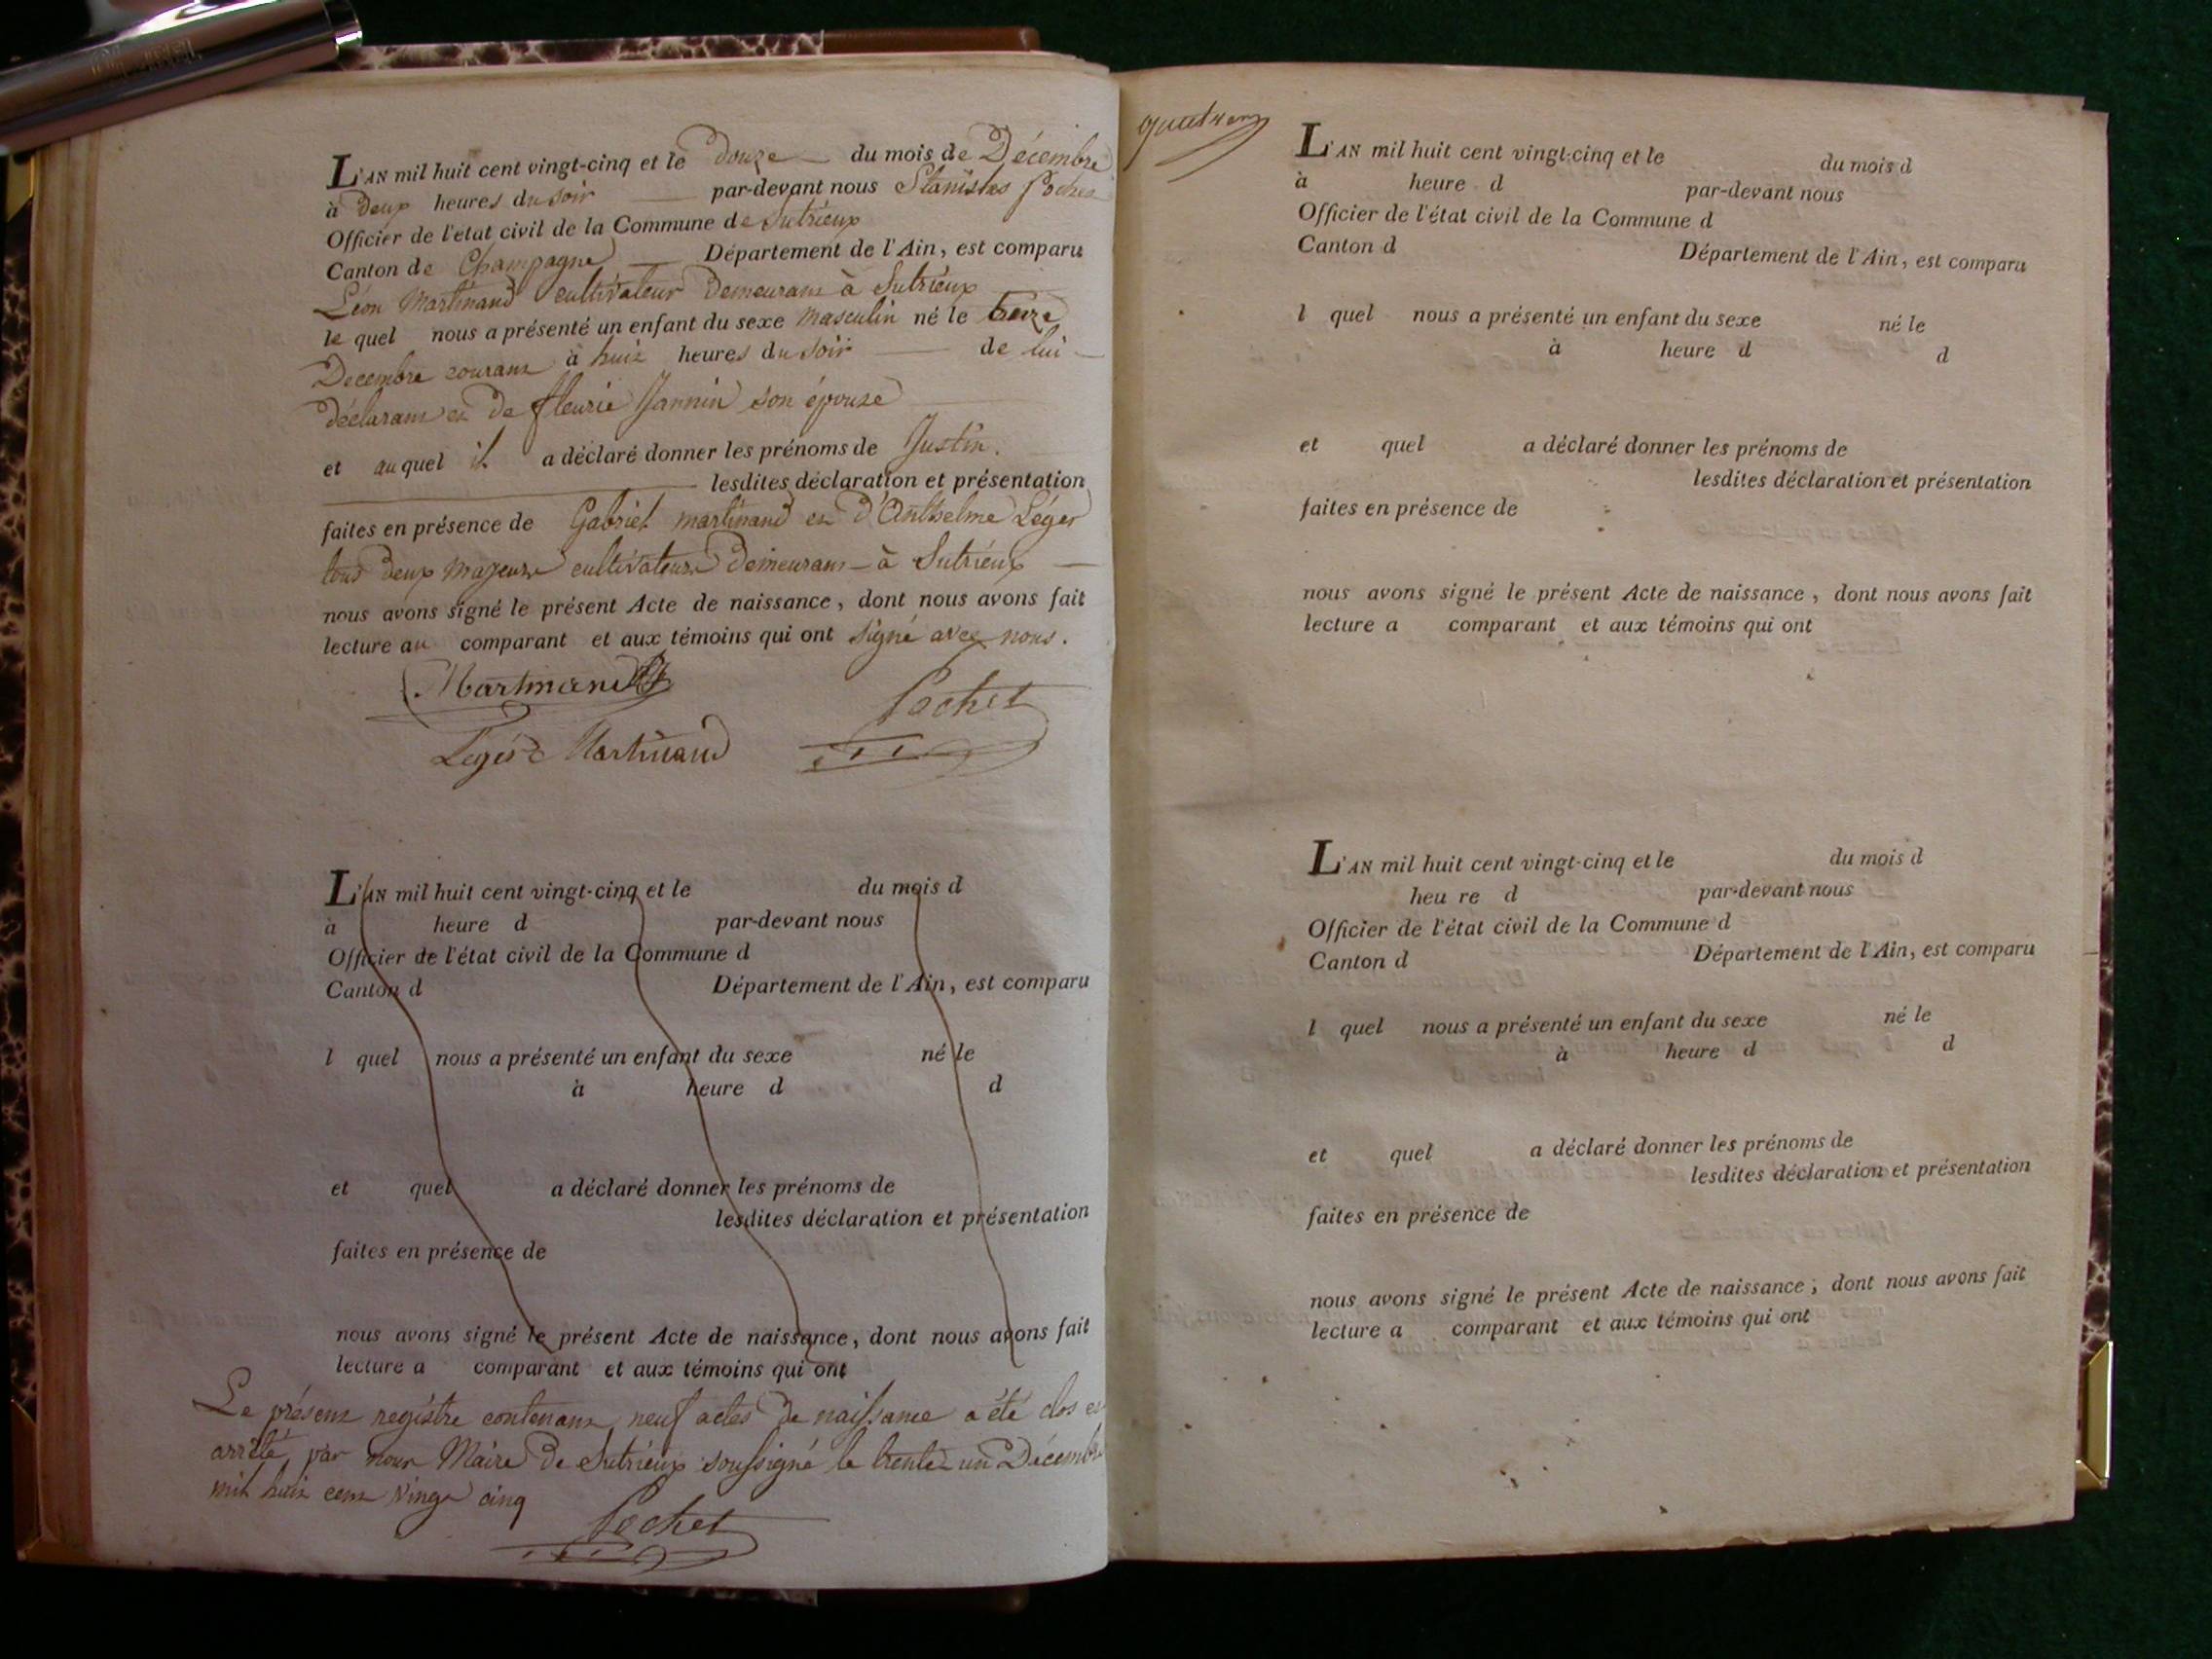 L'AN mil huit cent vingt-cinq et le douze du mois de Décembre
à deux heures du soir par-devant nous Stanislas Pochet
Officier de l'état civil de la Commune de Sutrieux
Canton de Champagne Département de l'Ain, est comparu
Léon Martinand cultivateur demeurant à Sutrieux
le quel nous a présenté un enfant du sexe masculin né le
Decembre courant à huit heures du soir de lui
déclarant et de fleurie Jannin son épouse
et au quel il a déclaré donner les prénoms de Justin.
lesdites déclaration et présentation
faites en présence de Gabriel martinand et d'Anthelme Léger
tous deux majeurs cultivateurs demeurant à Sutrieux
nous avons signé le présent Acte de naissance, dont nous avons fait
lecture au comparant et aux témoins qui ont signé avec nous.
Martinand
Pochet
Léger Martinand
L'AN mil huit cent vingt-cinq et le du mois d
à heure d par-devant nous
Officier de l'état civil de la Commune d
Canton d Département de l'Ain, est comparu
l quel nous a présenté un enfant du sexe né le
à heure d d
et quel a déclaré donner les prénoms de
lesdites déclaration et présentation
faites en présence de
nous avons signé le présent Acte de naissance, dont nous avons fait
lecture a comparant et aux témoins qui ont
Le présent registre contenant neuf actes de naissance a été clos et
arrêté par nous Maire de Sutrieux soussigné le trente un Décembre
mil huit cent vingt cinq
Pochet
L'AN mil huit cent vingt-cinq et le du mois d
à heure d par-devant nous
Officier de l'état civil de la Commune d
Canton d Département de l'Ain, est comparu
l quel nous a présenté un enfant du sexe né le
à heure d d
et quel a déclaré donner les prénoms de
lesdites déclaration et présentation
faites en présence de
nous avons signé le présent Acte de naissance, dont nous avons fait
lecture a comparant et aux témoins qui ont
L'AN mil huit cent vingt-cinq et le du mois d
heu re d par-devant nous
Officier de l'état civil de la Commune d
Canton d Département de l'Ain, est comparu
l quel nous a présenté un enfant du sexe né le
à heure d d
et quel a déclaré donner les prénoms de
lesdites déclaration et présentation
faites en présence de
nous avons signé le présent Acte de naissance; dont nous avons fait
lecture a comparant et aux témoins qui ont